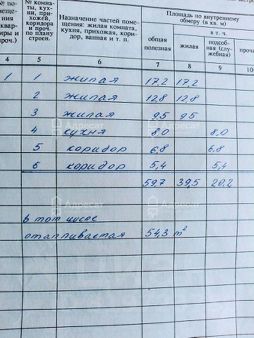 № комна-
ты, кух-
ни, при-
хожей,
коридора
и проч.
по плану
строен.
Назначение частей поме-
щения: жилая комната,
кухня, прихожая, кори-
дор, ванная и т. п.
Площадь по внутреннему
обмеру (в кв. м)
общая
полезная
в т. ч.
жилая
подсоб-
ная (слу-
жебная)
4 5 6 7 8 9
1 1 жилая 17,2 17,2
2 жилая 12,8 12,8
3 жилая 9,5 9,5
4 кухня 8,0 8,0
5 коридор 6,8 6,8
6 коридор 5,4 5,4
59,7 39,5 20,2
в том числе
отапливаемая 54,3 м²
Адресат